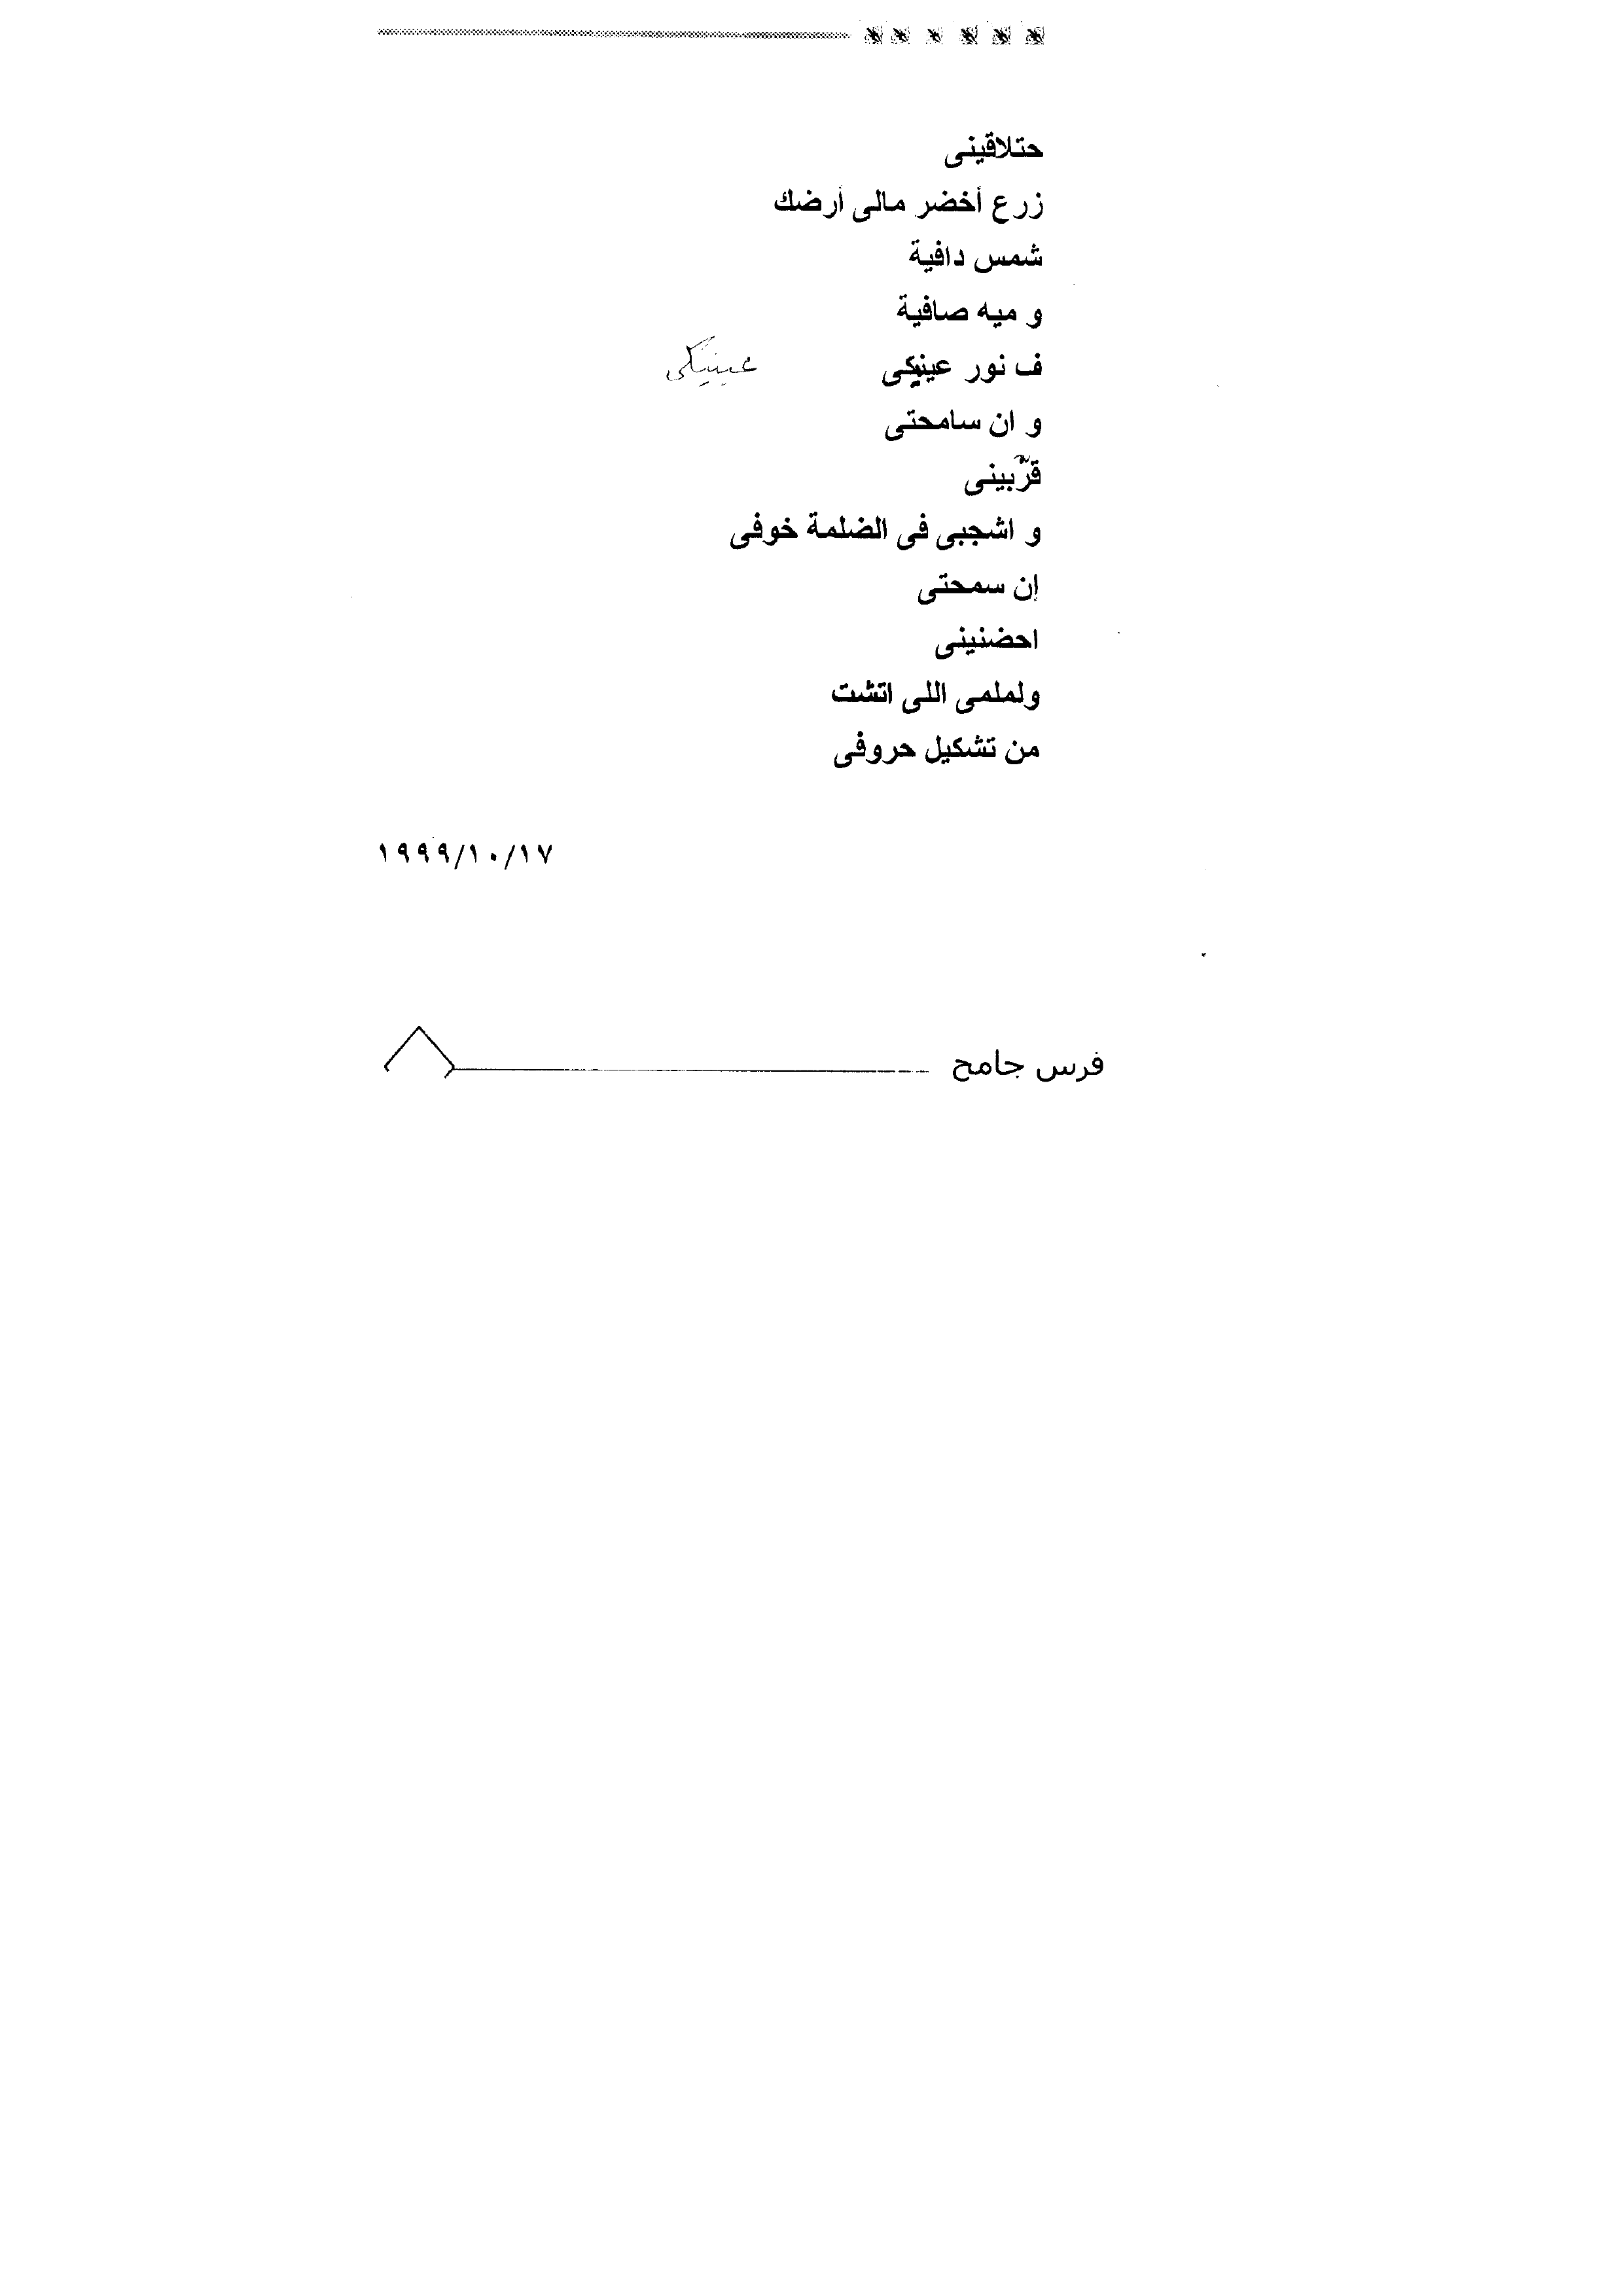 حتلاقينى
زرع أخضر مالى أرضك
شمس دافية
و ميه صافية
ف نور عينيكى عينيكى
و ان سامحتى
قرّبينى
و اشجبى فى الضلمة خوفى
إن سمحتى
احضنينى
ولملمى اللى اتشت
من تشكيل حروفى
١٩٩٩/١٠/١٧
فرس جامح